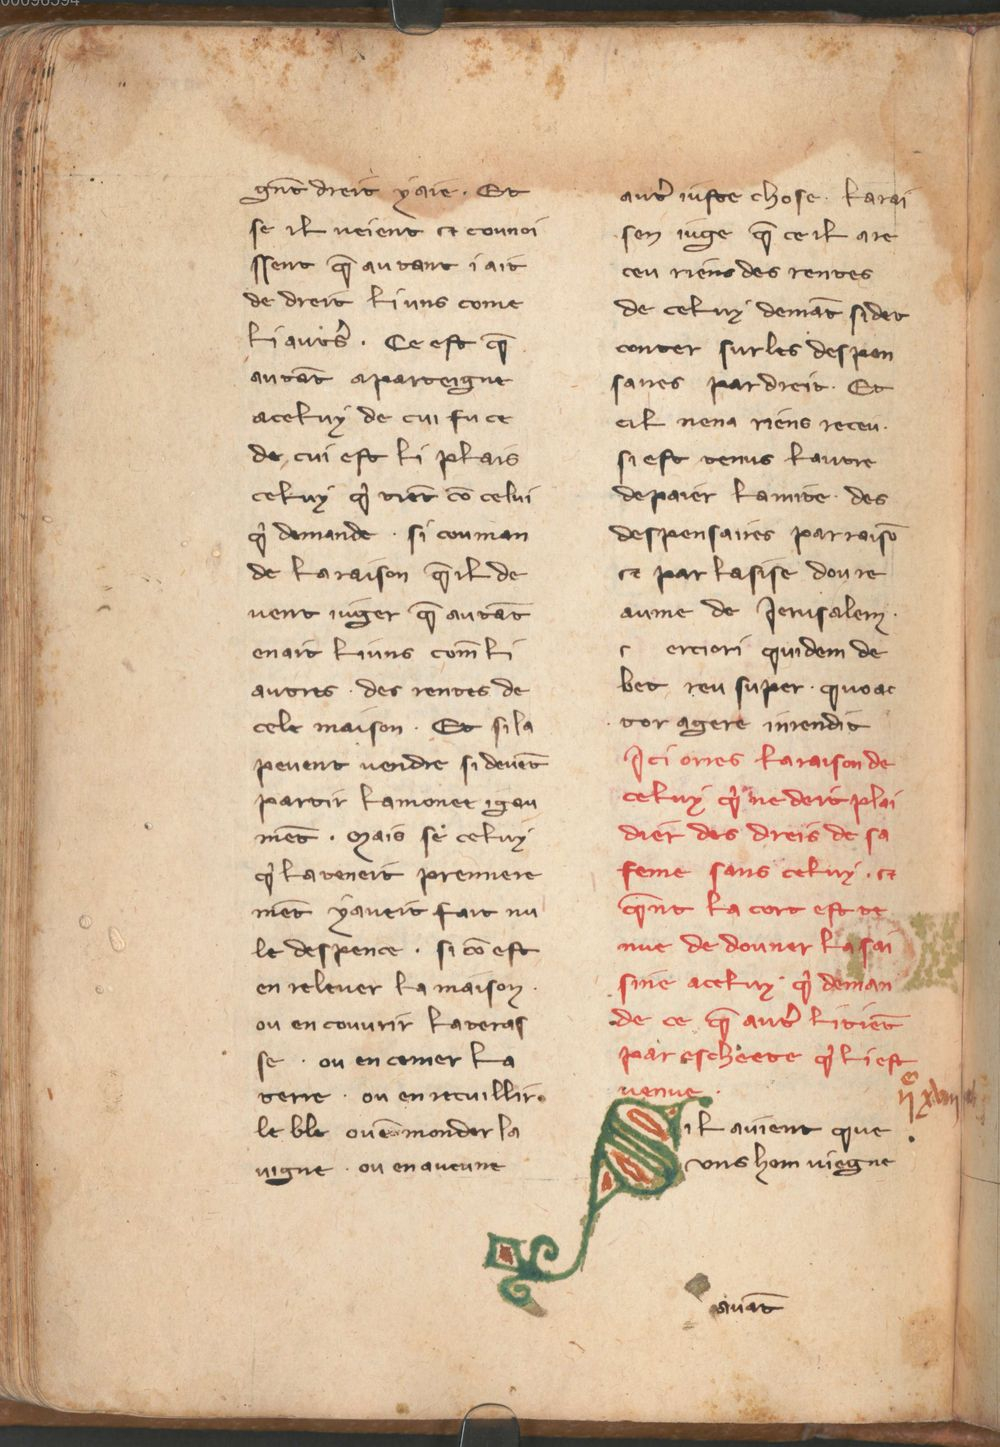 00096594
gñt dreit y aie . Et
se il veient et counoi
ssent q̄ autant i ait
de dreit li uns come
li autr̃s . Ce est q̄
autãt aparteigne
a celuy de cui fu ce
de cui est li plais
celuy qi tiẽt cõ celui
qi demande . si couman
de la raison q̄ il de
uent iuger q̄ autãt
en ait li uns com̃ li
autres . des rentes de
cele maison . Et si la
peuent vendre si deuẽt
partir la monee igau
mẽt . Mais se celuy
qi la teneit premiere
mẽt y aueit fait nu
le despence . si cõ est
en releuer la maison .
ou en couurir la teras
se . ou en semer la
terre . ou en recuillir
le ble ou ẽ monder la
vigne . ou en aucune
autr̃ iuste chose . la rai
son iuge q̄ ce il a re
ceu riens des rentes
de celuy demãt si det
conter sur les despen
saires par dreit . Et
cil nena riens receu .
si est tenus lautre
de paier la mite des
despensaires par raisõ
et par lasise dou re
aume de Jerusalem .
c erciori quidem de
bet reu super . quo ac
tor agere intendit
Ici orres la raison de
celuy qi ne deit plai
dier des dreis de sa
feme sans celuy . et
q̃nt la cort est te
nue de douner la sai
sine a celuy qi deman
de ce q̄ autr̃ li tiẽt
par escheete qi li est
venue .
Sil auient que
vns hom viegne
auãt